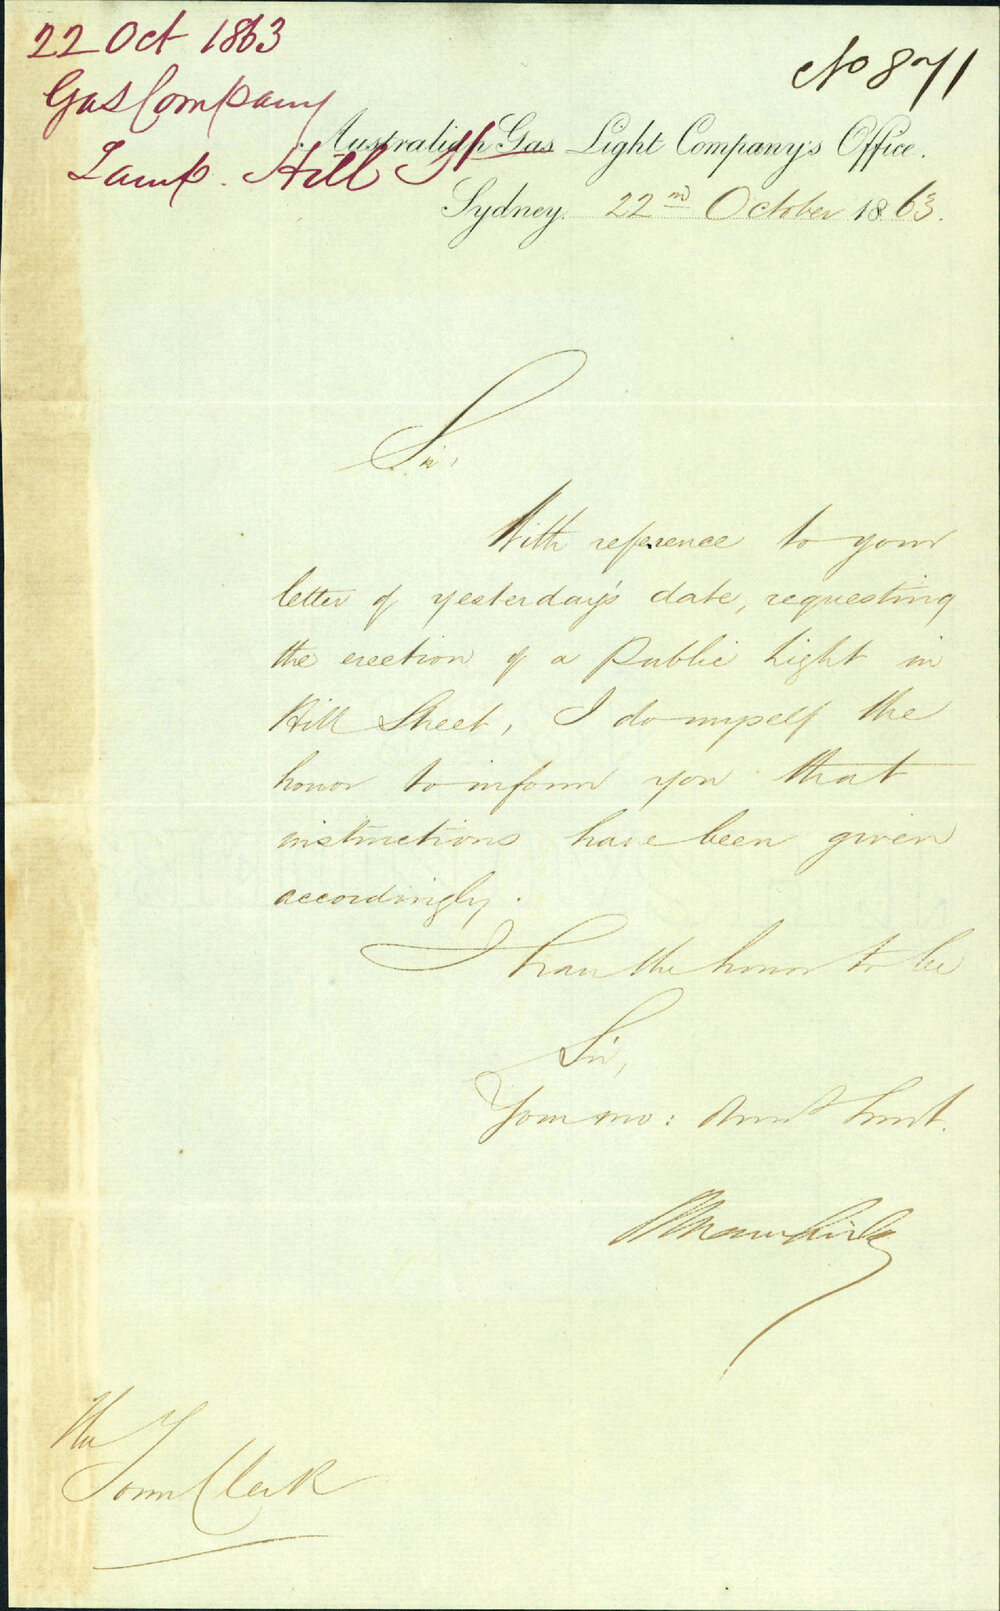 22 Oct 1863
Gas Company
Lamp. Hill St
No 871
Australian Gas Light Company's Office.
Sydney. 22nd October 1863.
Sir,
With reference to your
letter of yesterday's date, requesting
the erection of a Public Light in
Hill Street, I do myself the
honor to inform you that
instructions have been given
accordingly.
I have the honor to be
Sir,
Your mo: Servt
The
Town Clerk